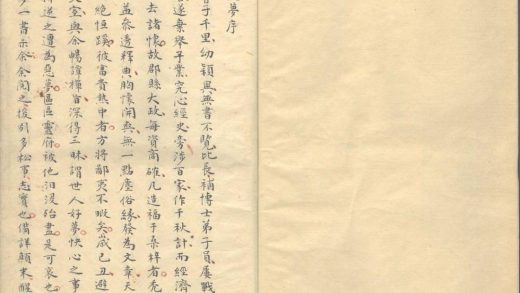 夢序
子千里幼穎異無書不覽比長補博士弟子員屢戰
遂棄舉子業究心經史旁涉百家作千秋計而經濟
去諸懷故郡縣大政每資商確凡造福于桑梓者
益參透釋典胸懷開爽無一點塵俗緣發為文章天
絕恒蹊彼富貴熱中者方將鄙夷不暇矣歲己丑避
室與余暢譚禪旨深得三昧謂世人好夢快心之事
逆之遭為惡夢區區靈府被他汨沒殆盡是可哀也
一書示余余閱之援列多松軍志實也備詳顛末醒